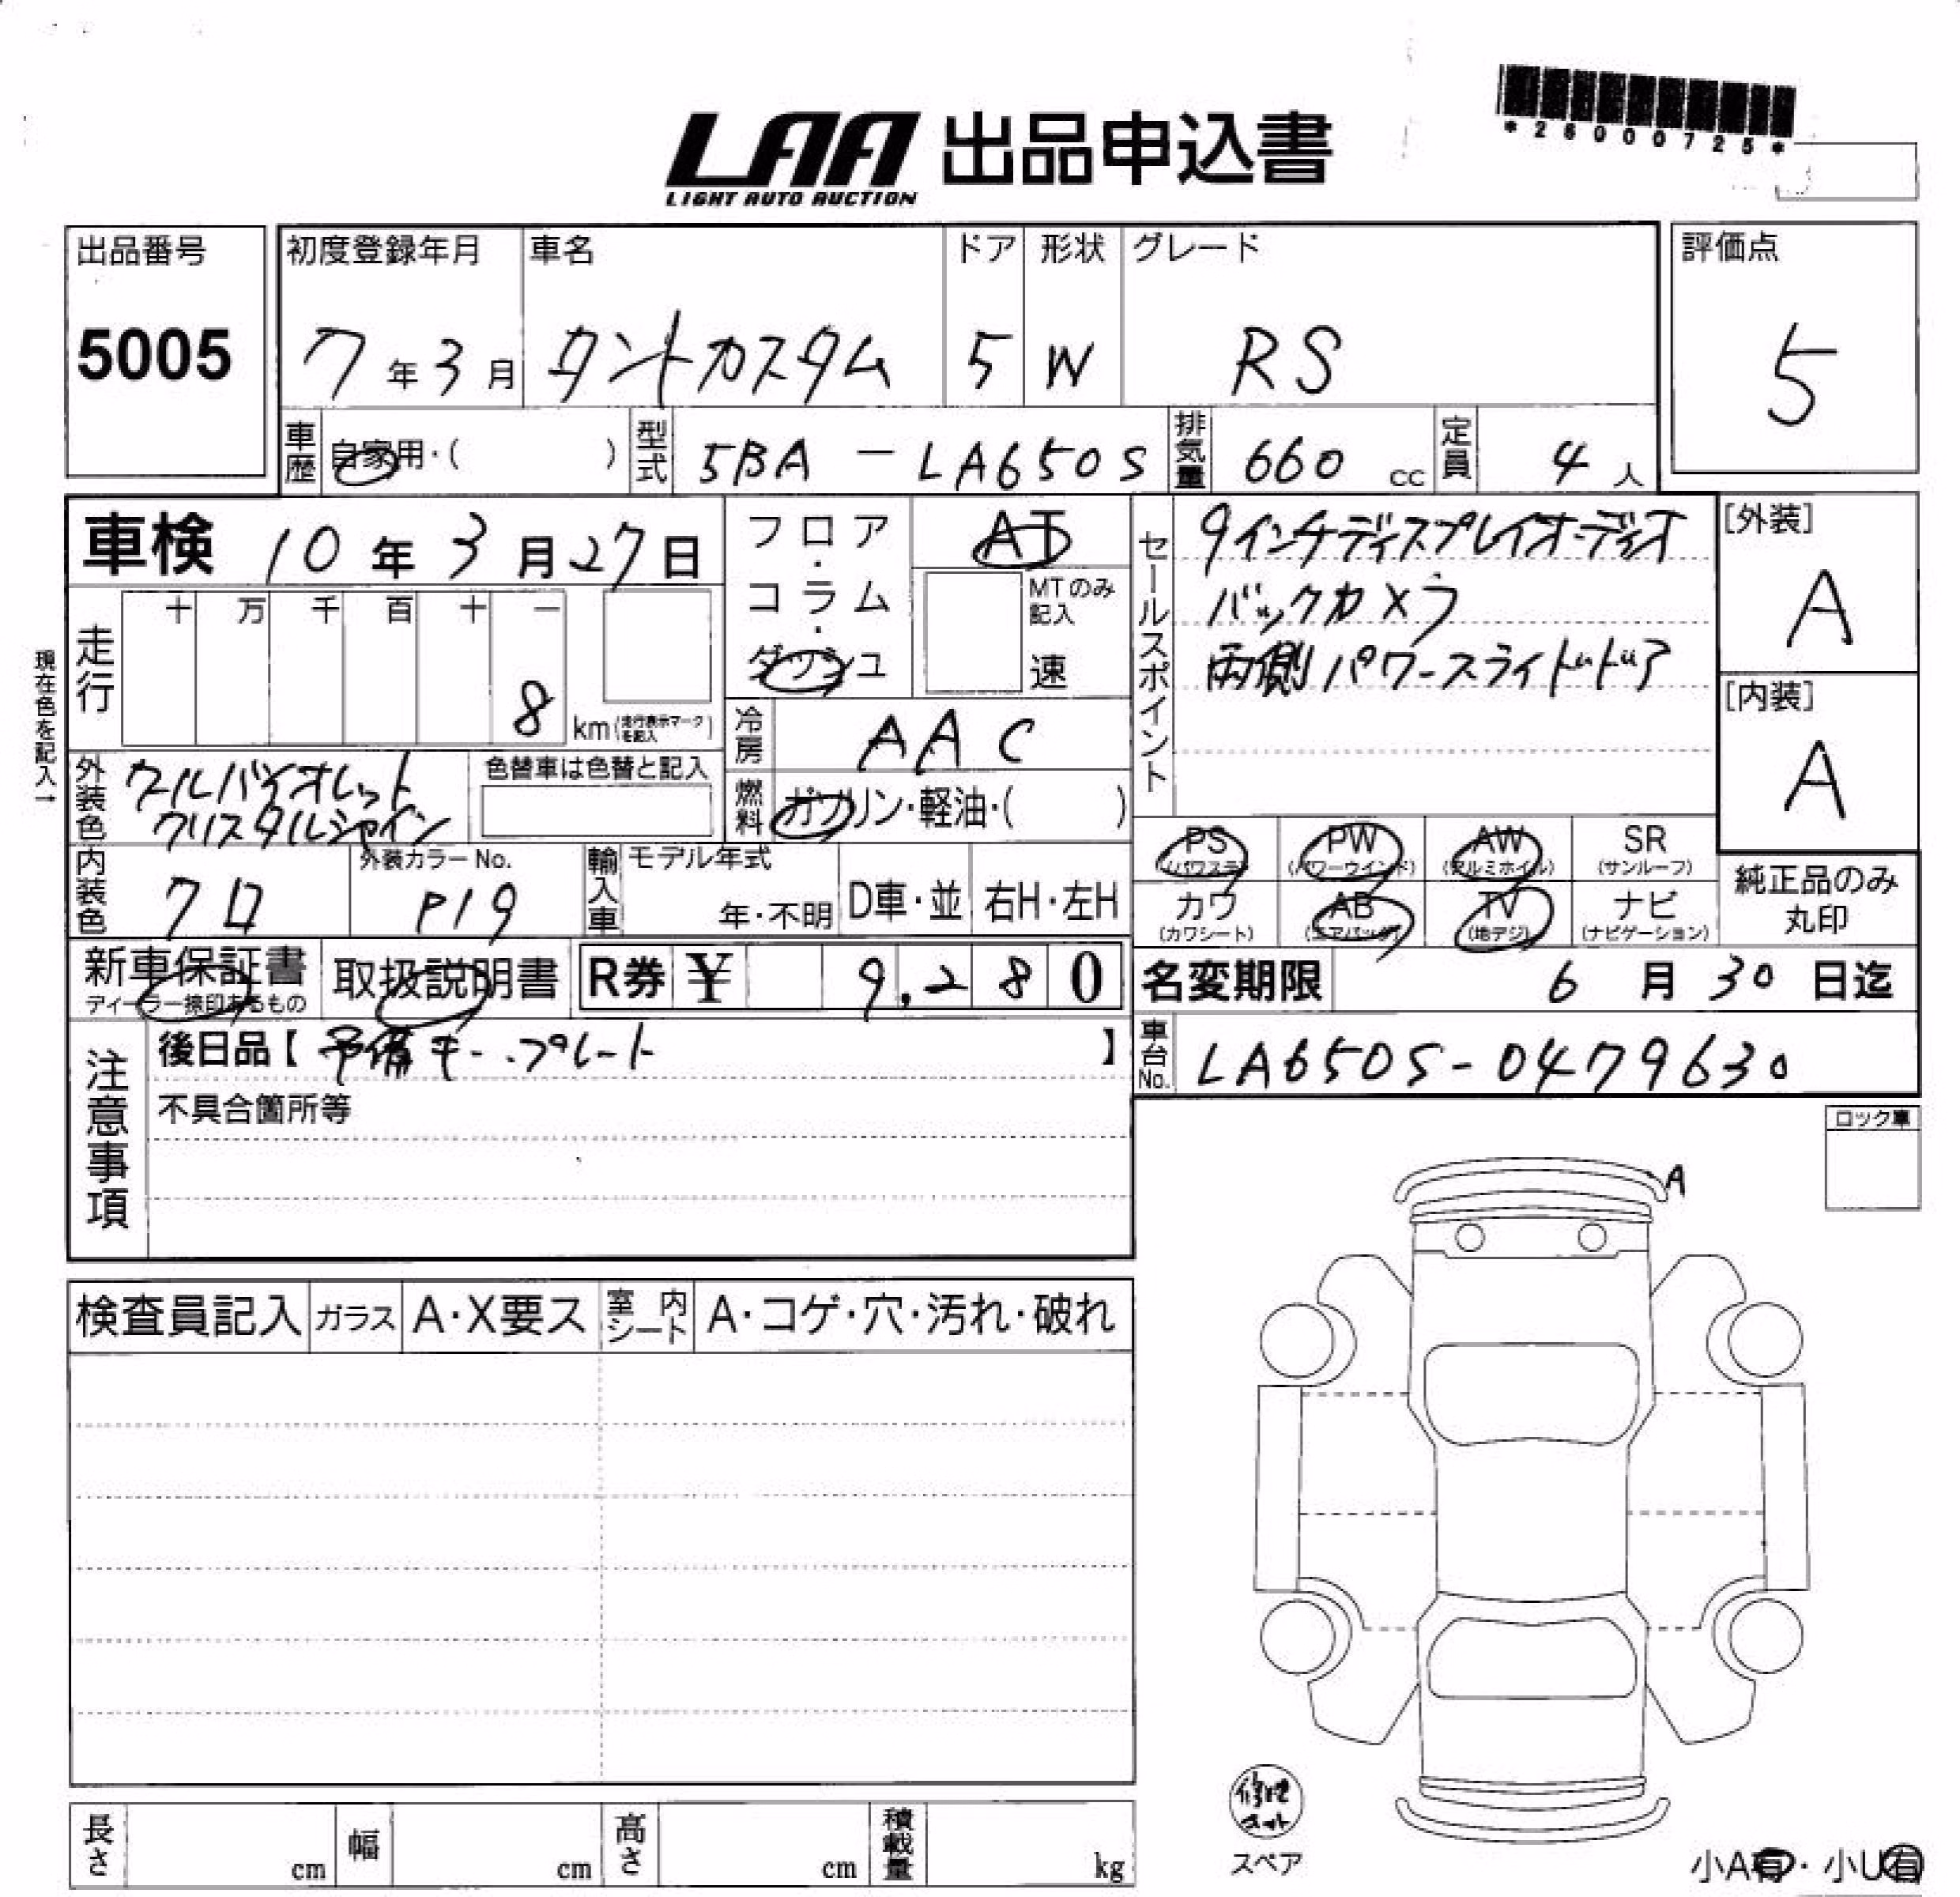 *26000725*
LAA 出品申込書
LIGHT AUTO AUCTION
出品番号 5005
初度登録年月 7年3月
車名 タントカスタム
ドア 5
形状 W
グレード RS
評価点 5
車歴 自家用・( )
型式 5BA-LA650S
排気量 660 cc
定員 4人
車検 10年3月27日
フロア・コラム・ダッシュ
AT
MTのみ記入 速
セールスポイント
9インチディスプレイオーディオ
バックカメラ
両側パワースライドドア
[外装] A
[内装] A
現在色を記入→
走行 十 万 千 百 十 一
8 km (走行表示マークを記入)
冷房 AAC
燃料 ガソリン・軽油・( )
外装色 クールバイオレット
クリスタルシャイン
色替車は色替と記入
内装色 クロ
外装カラーNo. P19
輸入車 モデル年式 年・不明 D車・並 右H・左H
PS (パワステ) PW (パワーウインド) AW (アルミホイル) SR (サンルーフ)
カワ (カワシート) AB (エアバック) TV (地デジ) ナビ (ナビゲーション)
純正品のみ
丸印
新車保証書
ディーラー捺印あるもの
取扱説明書
R券 ¥ 9,280
名変期限 6月30日迄
車台No. LA650S-0479630
注意事項
後日品【予備キー.プレート】
不具合箇所等
ロック車
A
検査員記入 ガラス A・X要ス 室内シート A・コゲ・穴・汚れ・破れ
長さ cm 幅 cm 高さ cm 積載量 kg
修理
キット
スペア
小A有・小U有